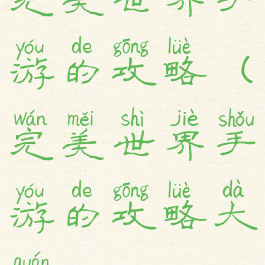 完美世界手
yóu de gōng lüè
游的攻略（
wán měi shì jiè shǒu
完美世界手
yóu de gōng lüè dà
游的攻略大
quán